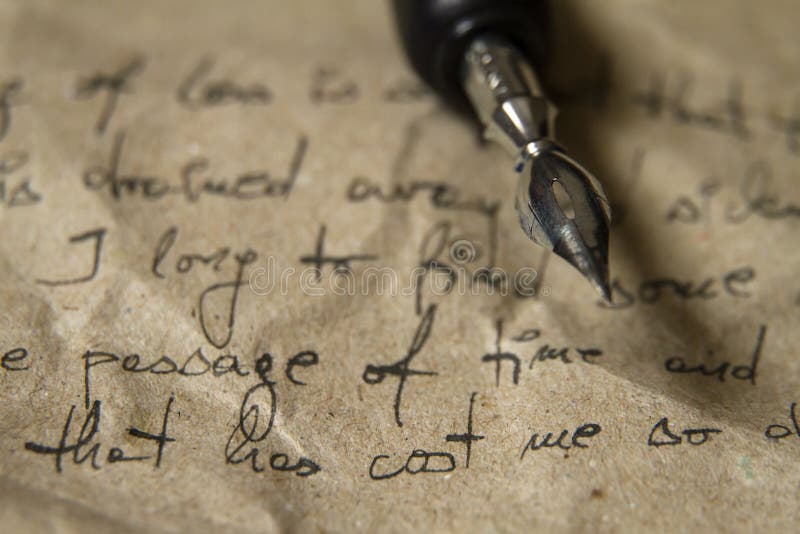 of loss is that
is drained away
I long to some
e passage of time and
that has cost me so d